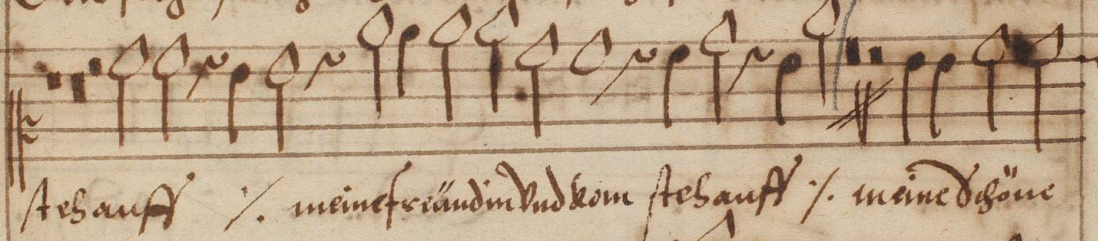 steh auff ·/. meine freündin Vnd kom steh auff ·/. meine Schöne